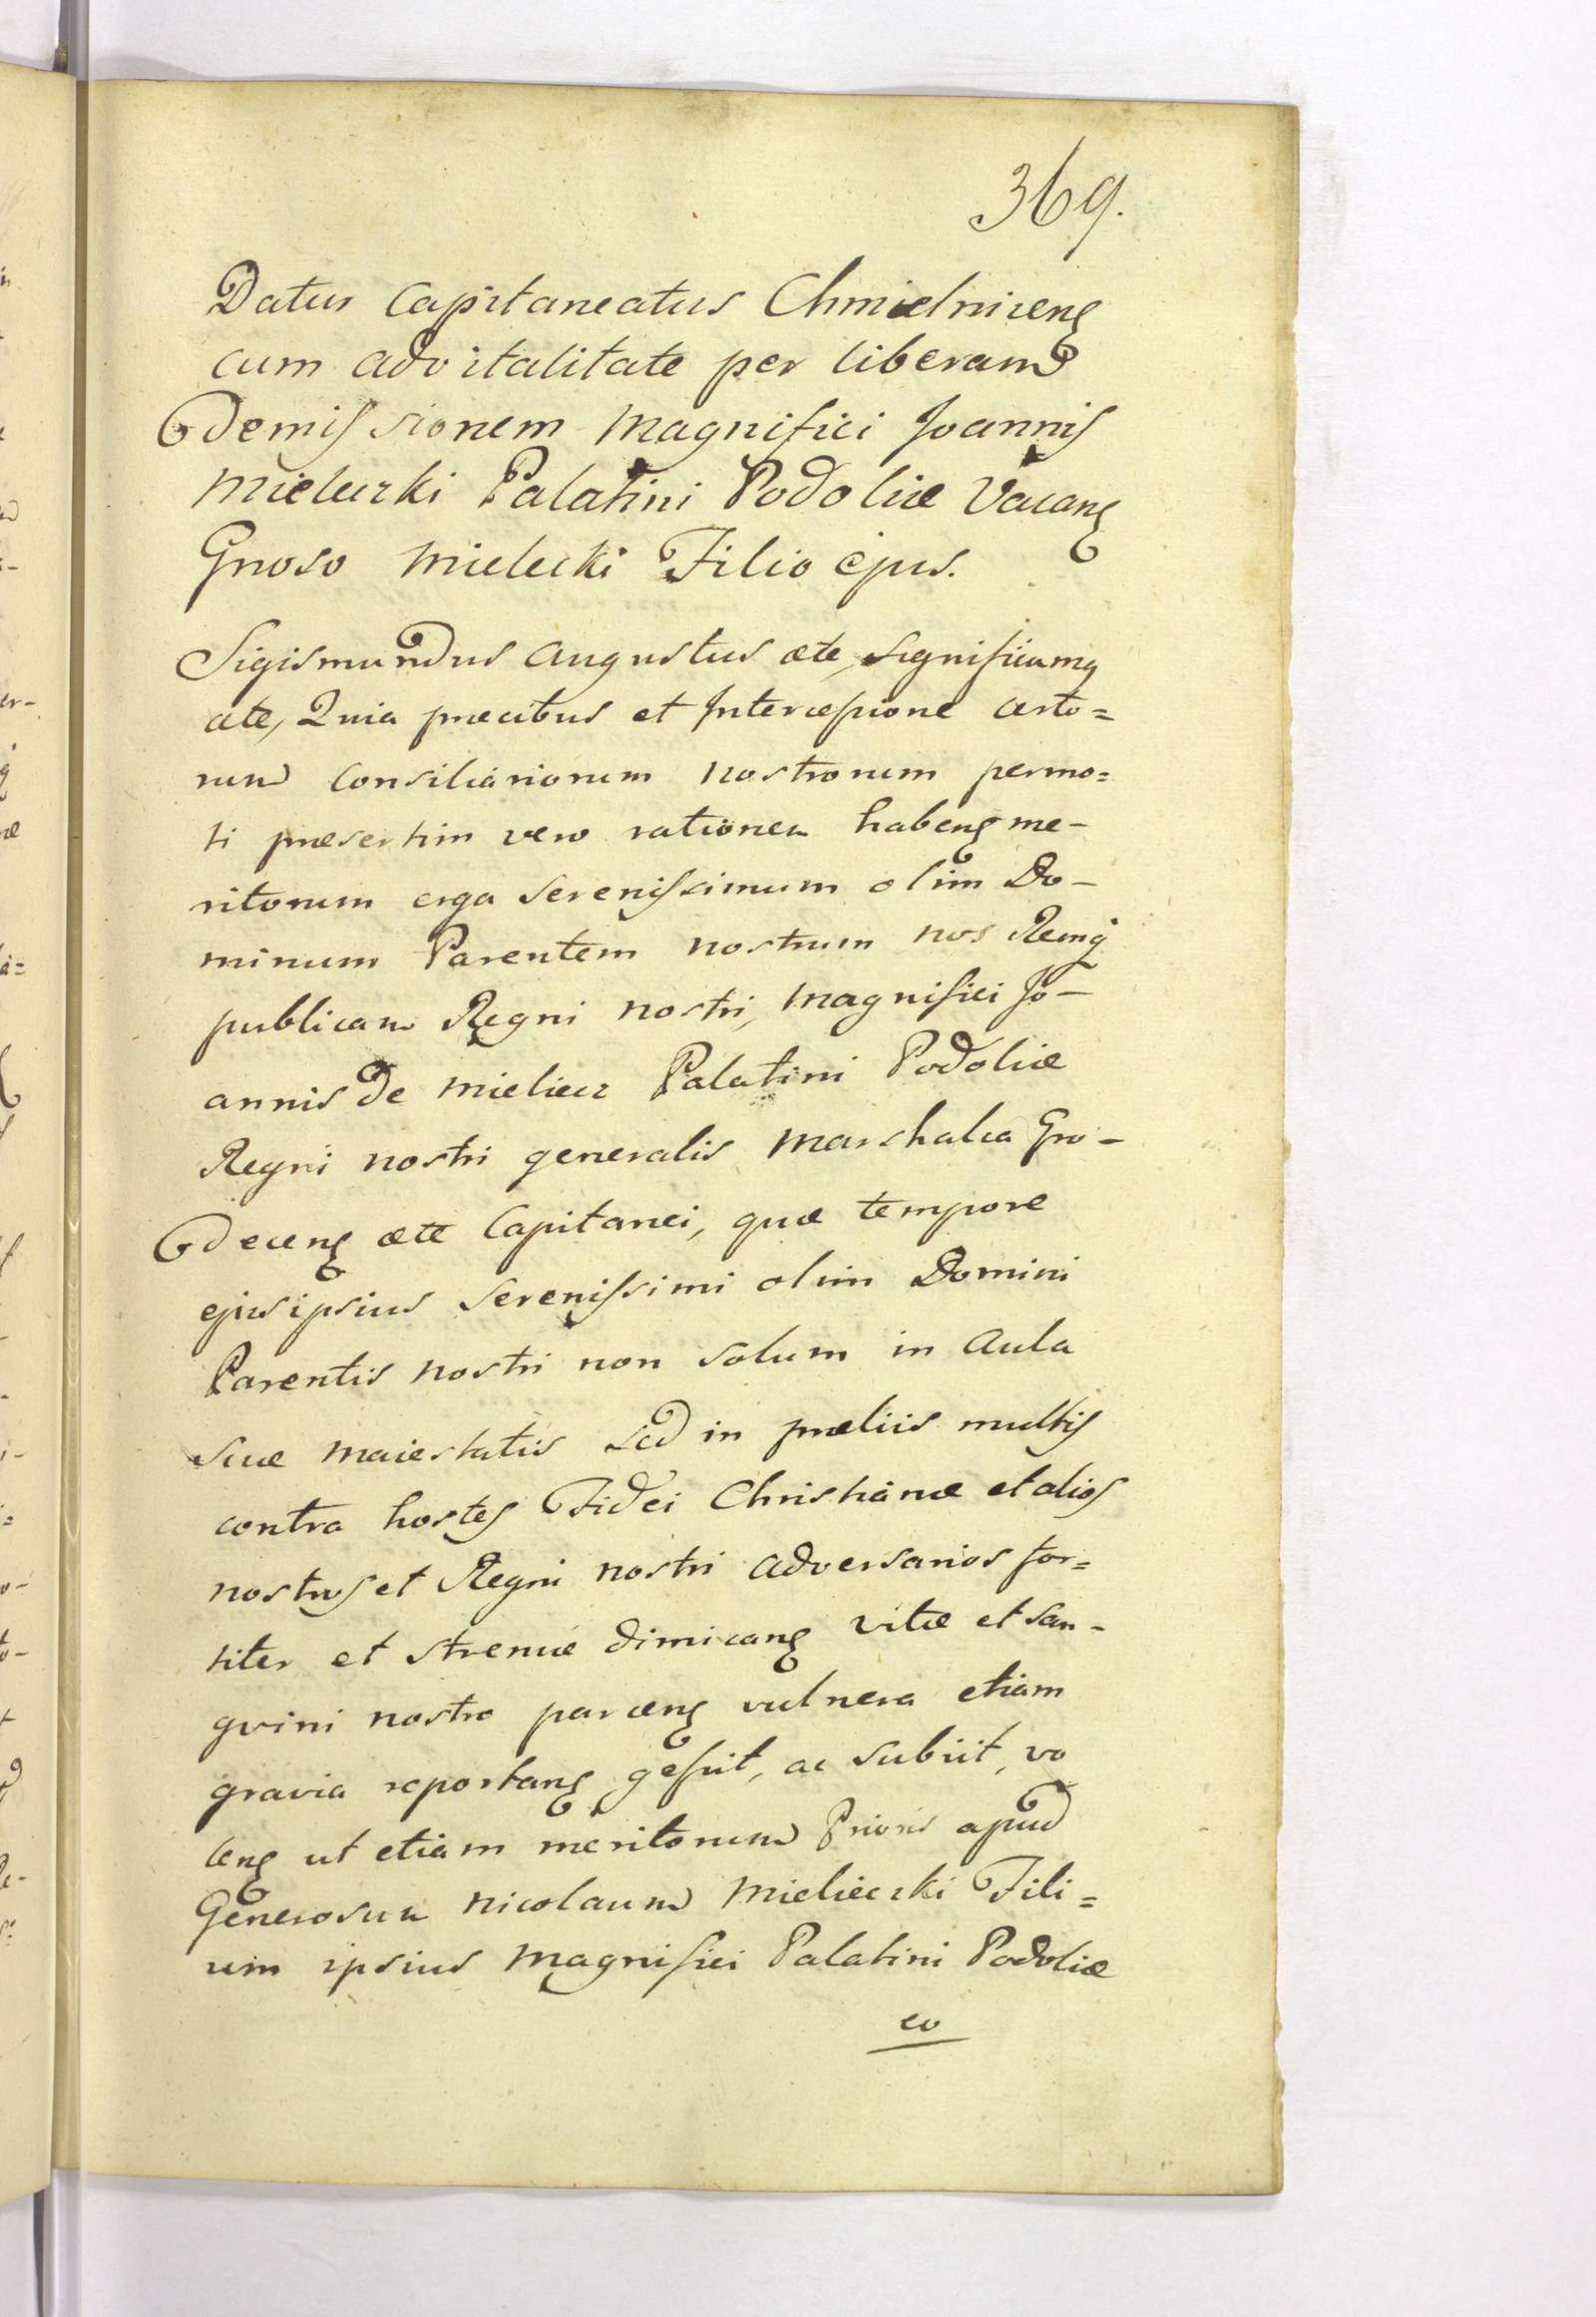 369.
Datus Capitaneatus Chmielnicens
cum advitalitate per liberam
Demissionem Magnifici Joannis
Mieleczki Palatini Podoliæ Vacans
Gnoso Mielecki Filio ejus.
Sigismundus Augustus ætc, significamq
ætc, Quia precibus et Intercessione certo=
rum Consiliariorum nostrorum permo=
ti præsertim vero rationem habens me-
ritorum erga Serenissimum olim Do-
minum Parentem nostrum nos Remq
publicam Regni nostri, Magnifici Jo-
annis de Mieliecz Palatini Podoliæ
Regni nostri generalis Marshalca Gro-
decens ætc Capitanei, quæ tempore
ejus ipsius Serenissimi olim Domini
Parentis nostri non solum in Aula
Suæ Maiestatis Sed in præliis multis
contra hostes Fidei Christianæ et alios
nostros et Regni nostri adversarios for=
titer et strenuæ dimicans vitæ et san-
gvini nostro parcens vulnera etiam
gravia reportans gessit, ac subiit, vo
lens ut etiam meritorum Prioris apud
Generosum Nicolaum Mielieczki Fili=
um ipsius Magnifici Palatini Podoliæ
eo